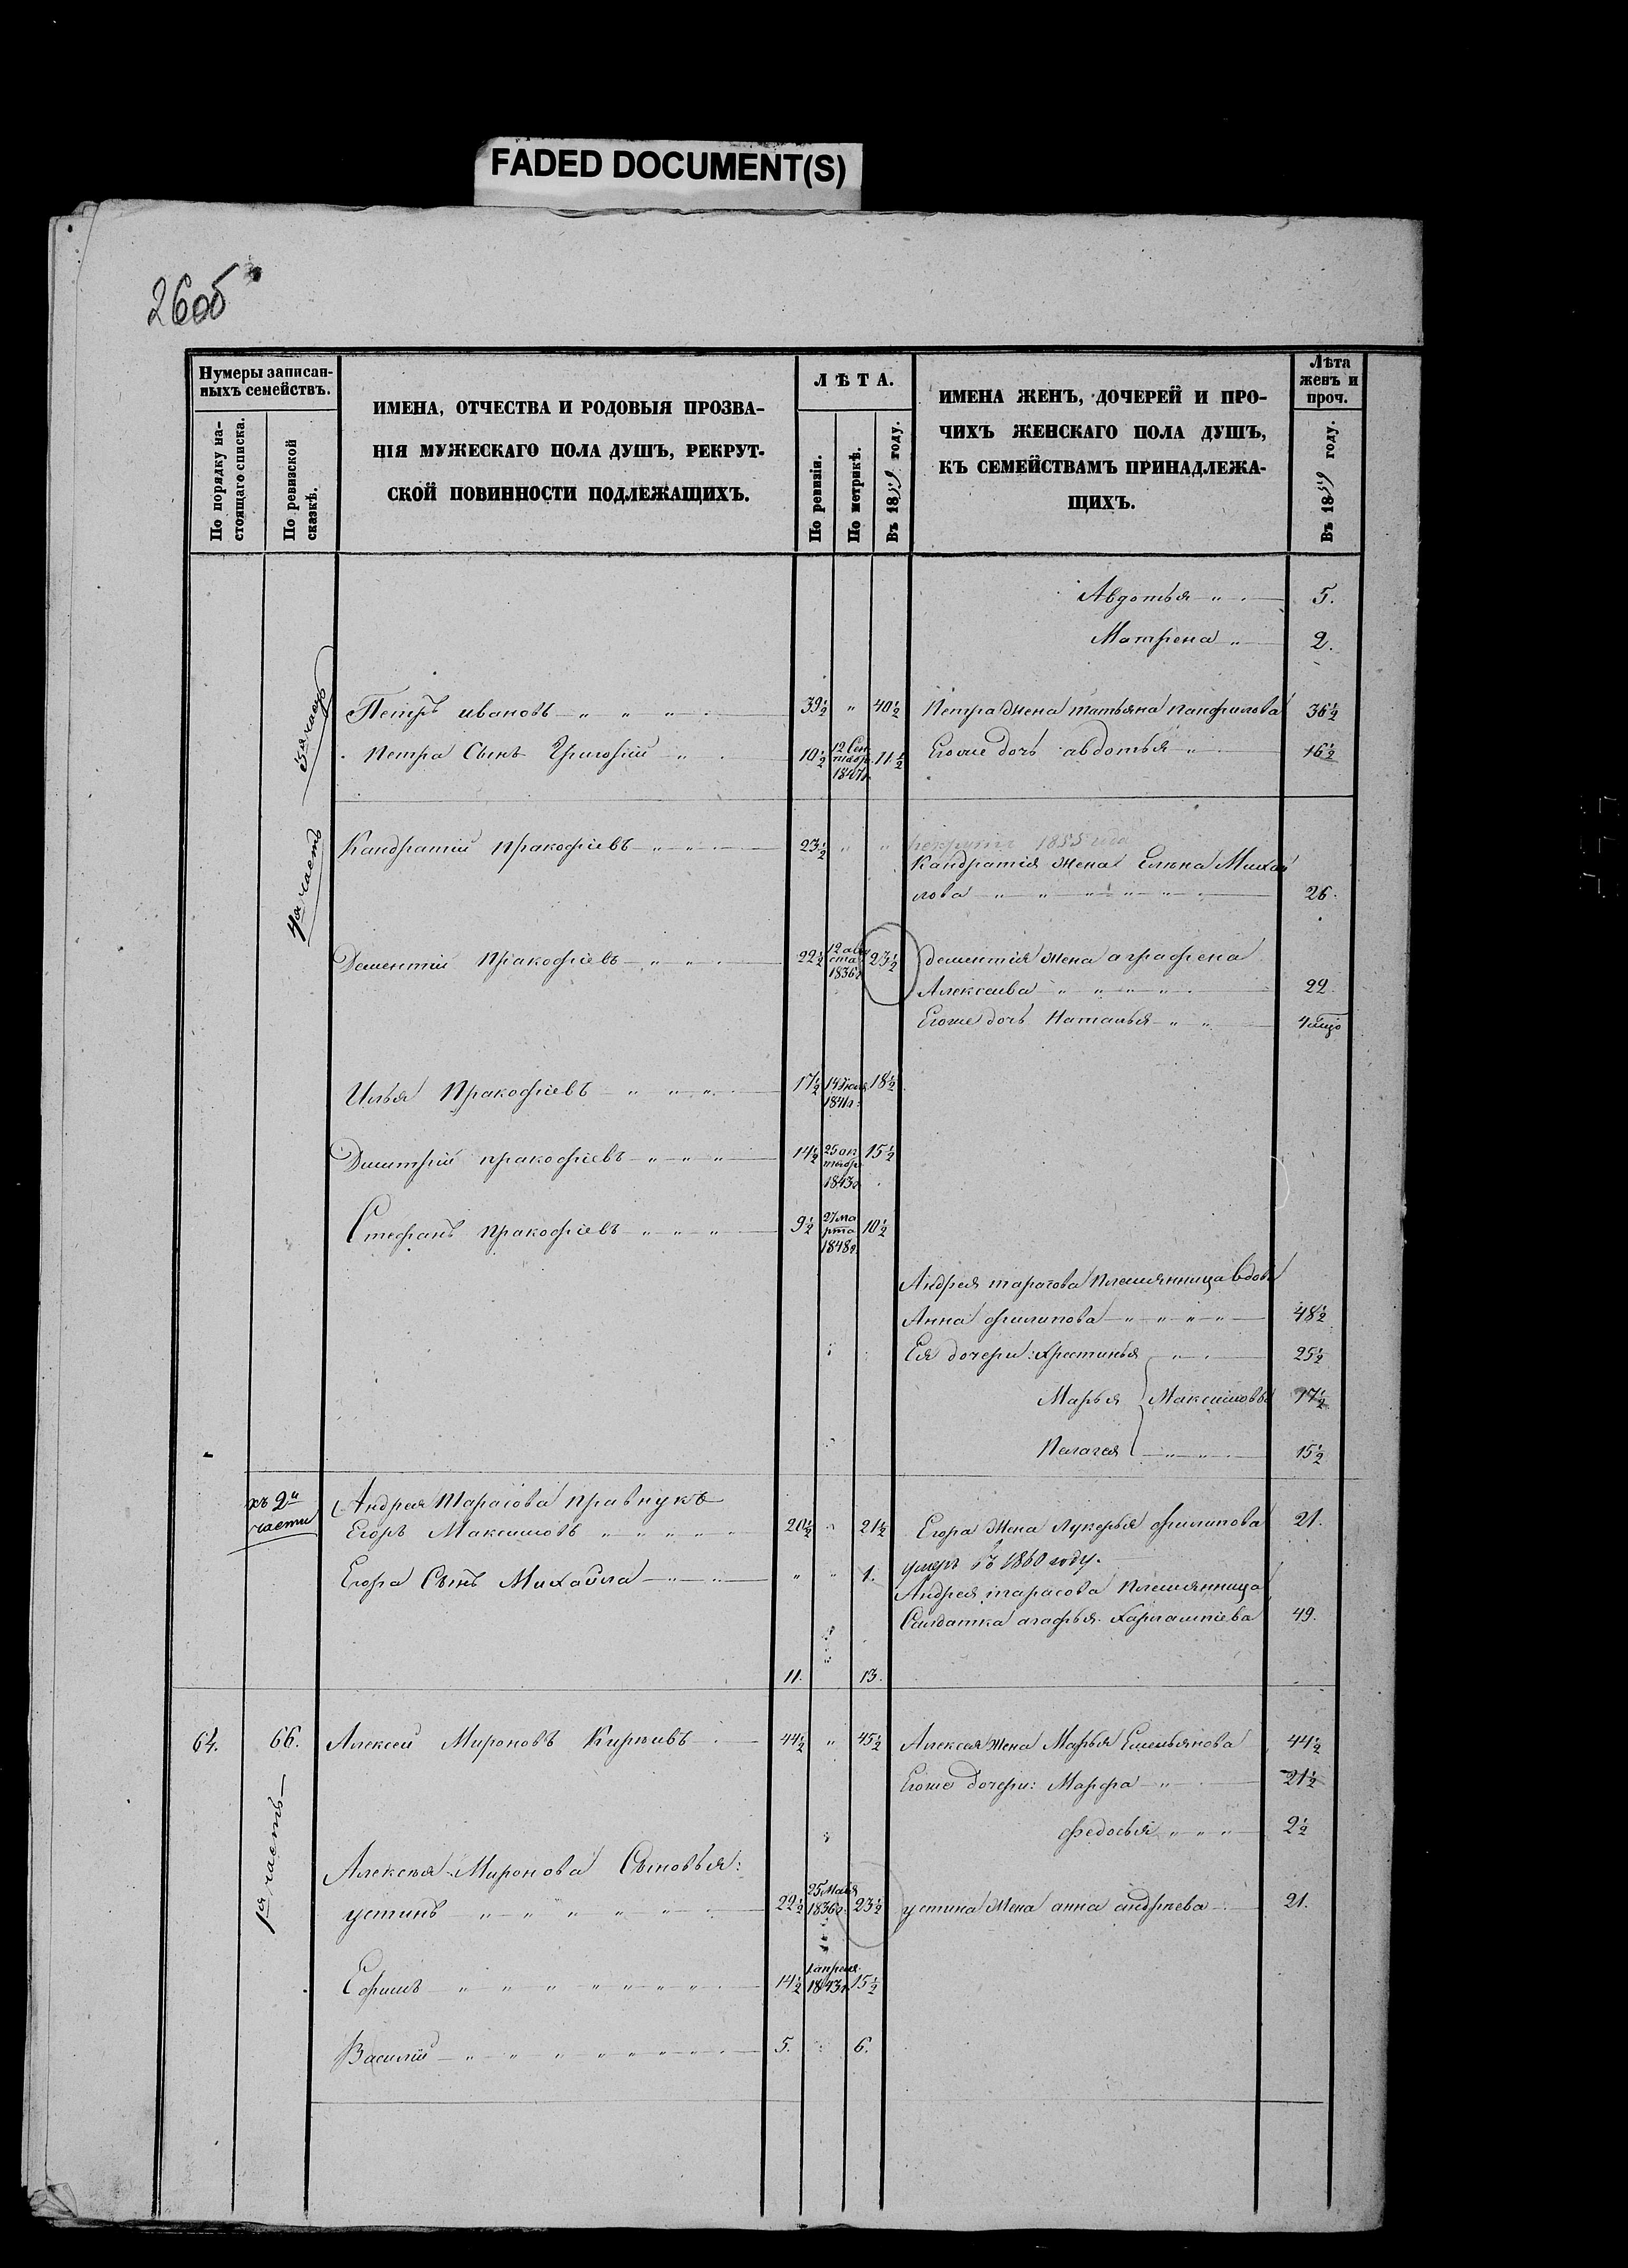 FADED DOCUMENT(S)
26об
Нумеры записан-
ныхъ семействъ.
По порядку на-
стоящаго списка.
По ревизской
сказкѣ.
ИМЕНА, ОТЧЕСТВА И РОДОВЫЯ ПРОЗВА-
НІЯ МУЖЕСКАГО ПОЛА ДУШЪ, РЕКРУТ-
СКОЙ ПОВИННОСТИ ПОДЛЕЖАЩИХЪ.
ЛѢТА.
По ревизіи.
По метрикѣ.
Въ 1859 году.
ИМЕНА ЖЕНЪ, ДОЧЕРЕЙ И ПРО-
ЧИХЪ ЖЕНСКАГО ПОЛА ДУШЪ,
КЪ СЕМЕЙСТВАМЪ ПРИНАДЛЕЖА-
ЩИХЪ.
Лѣта
женъ и
проч.
Въ 1859 году.
Авдотья " 5.
Матрена " 2.
Петръ ивановъ " " " 39½ " 40½ Петра Жена татьяна панфилова 36½
Петра Сынъ Григорій " 10½ 12 Сен
тября 11½ Егоже дочь авдотья " 16½
3я часть
4я часть
Кандратій Пракофіевъ " " 23½ " " рекрутъ 1855 года
Кандратія Жена Елена Михаи
лова " " " " " " 26.
Дементій Пракофіевъ " " 22½ 12 авгу
ста
1836г 23½ дементія жена аграфена
Алексеива " " " " " 22.
Егоже дочь Наталья " "
Илья Пракофіевъ " " " 17½ 14 Июля
1841г. 18½
Дмитрій пракофіевъ " " " 14½ 25 ок
тября
1843г 15½
Стефанъ пракофіевъ " " " 9½ 27 ма
рта
1848г. 10½
Андрея тарасова племянница вдова
Анна филипова " " " " 48½
Ея дочери: Христинья " 25½
Марья Максимовы 17½
Пелагея " " 15½
къ 2й
части
Андрея Тарасова правнукъ
Егоръ Максимовъ " " " " " 20½ " 21½ Егора Жена Лукерья филипова 21.
Егора Сынъ Михайла " " " " 1. умеръ въ 1860 году.
Андрея тарасова племянница
Салдатка агафья Харлампіева 49.
11. 13.
64. 66. Алексей Мироновъ 44½ " 45½ Алексея Жена Марья Емельянова 44½
Егоже дочери: Марфа " 21½
федосья " " " 2½
1я часть
Алексея Миронова Сыновья:
устинъ " " " " " " 22½ 25 Маія
1836г. 23½ устина Жена анна андреева 21.
Ефимъ " " " " " " " 14½ 1 апреля
1843г. 15½
Василій " " " " " " " 5. 6.